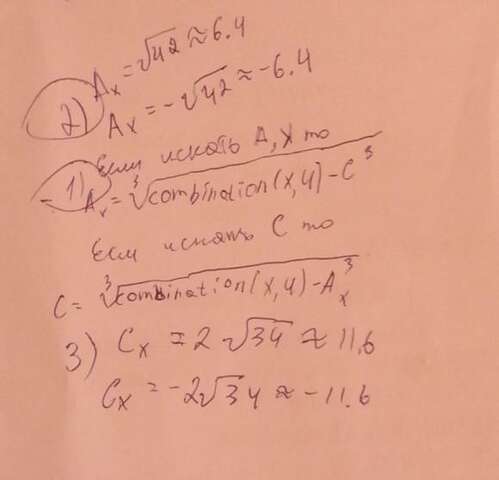 2) Aₓ = √42 ≈ 6.4
Aₓ = -√42 ≈ -6.4
Если искать A, x то
1) Aₓ = ³√combination(x,4) - C³
Если искать C то
C = ³√combination(x,4) - Aₓ³
3) Cₓ = 2√34 ≈ 11.6
Cₓ = -2√34 ≈ -11.6